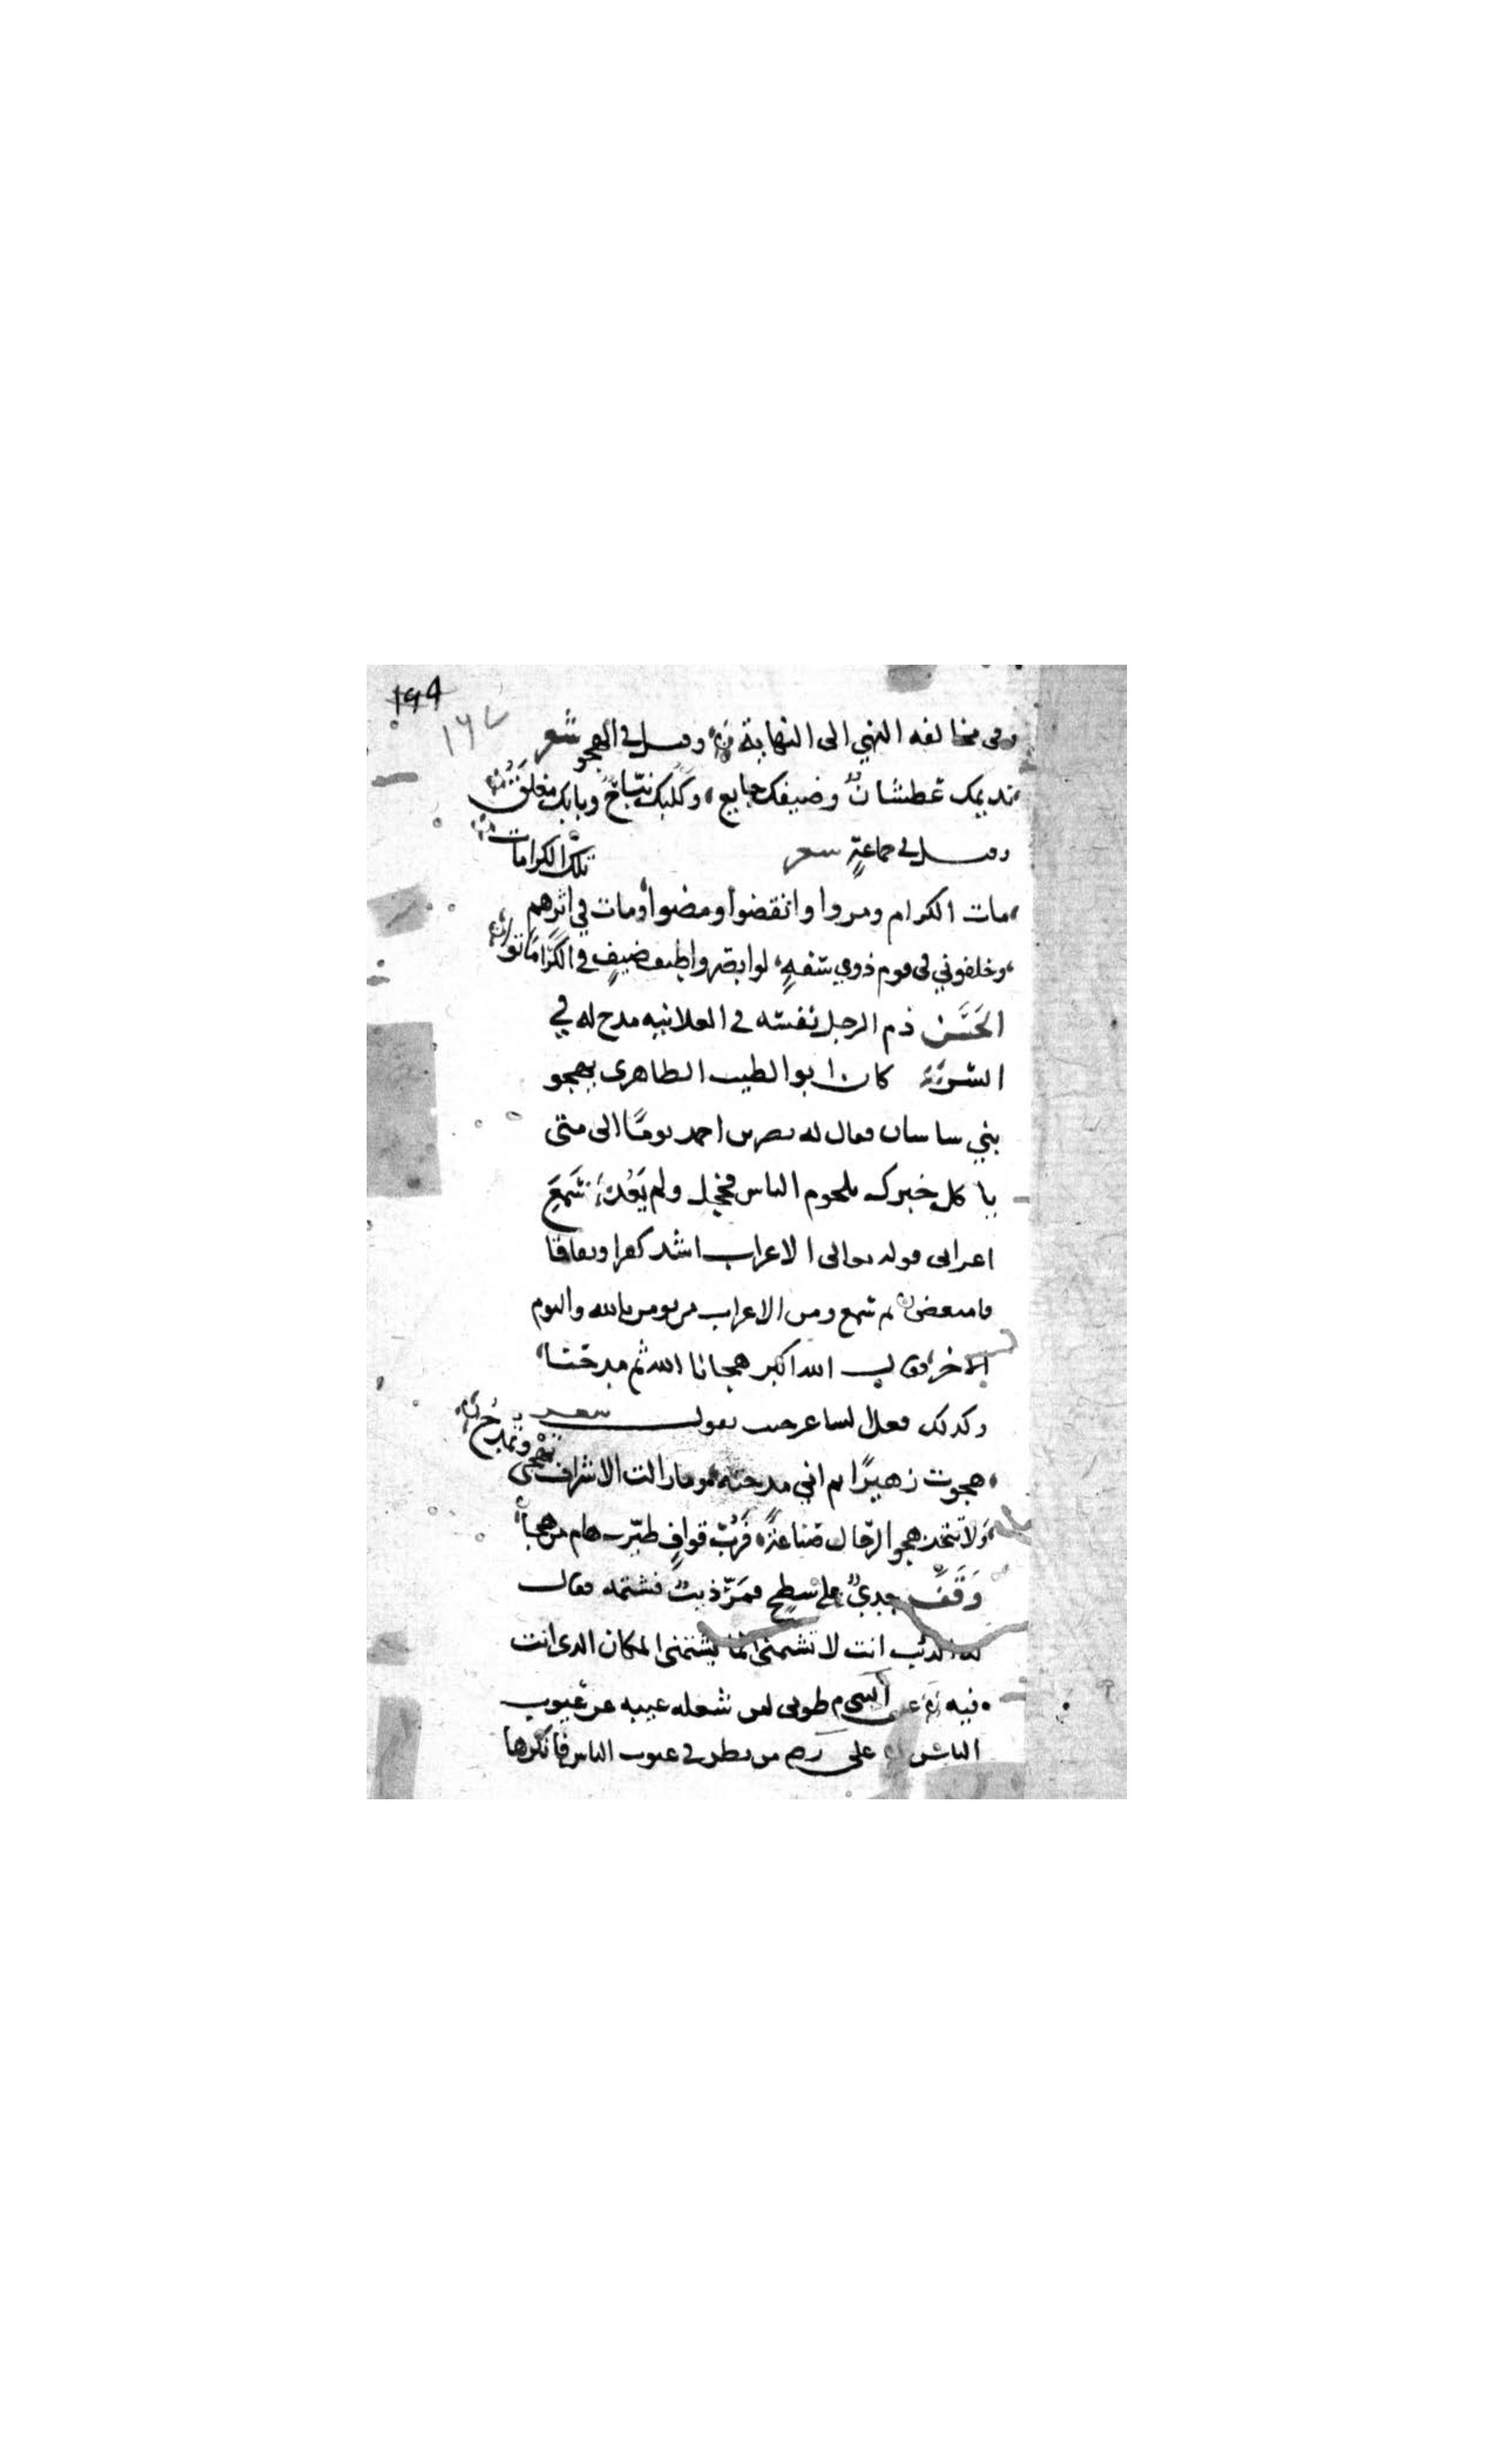 ١٩٩
١٦٧
وفي مخالفه النهي الى النهاية وقيل في الهجو شعر
نديمك عطشان وضيفك جايع وكلبك نبّاح وبابك مغلق
وقيل في جماعةٍ شعر
مات الكرام ومروا وانقضوا ومضوا ومات في اثرهم تلك الكرامات
وخلفوني في قوم ذوي سفهٍ لو ابصروا طيف ضيفٍ في الكرا ماتوا
الحَسَن ذم الرجل نفسه في العلانيه مدح له في
السر كان ابو الطيب الطاهرى يهجو
بني ساسان فقال له نصر بن احمد يومًا الى متى
تاكل خبزك بلحوم الناس فخجل ولم يَعُد سَمِعَ
اعرابى قوله تعالى الاعراب اشد كفرا ونفاقا
فامتعض ثم سمع ومن الاعراب من يومن بالله واليوم
الاخر فقال الله اكبر هجانا الله ثم مدحنا
وكذلك فعل الشاعر حيث يقول شعر
هجوت زهيرًا ثم اني مدحته وما زالت الاشراف تهجى وتمدح
ولا تتخذ هجو الرجال صناعةً فرُبّ قوافٍ طيّرت هام من هجا
وَقَفَ جديٌ على سطح فمَرّ ذيبٌ فشتمه فقال
له الذئب انت لا تشتمنى انما يشتمنى المكان الذى انت
فيه عن النبى م طوبى لمن شغله عيبه عن عيوب
الناس على رضه من نظر في عيوب الناس فانكرها